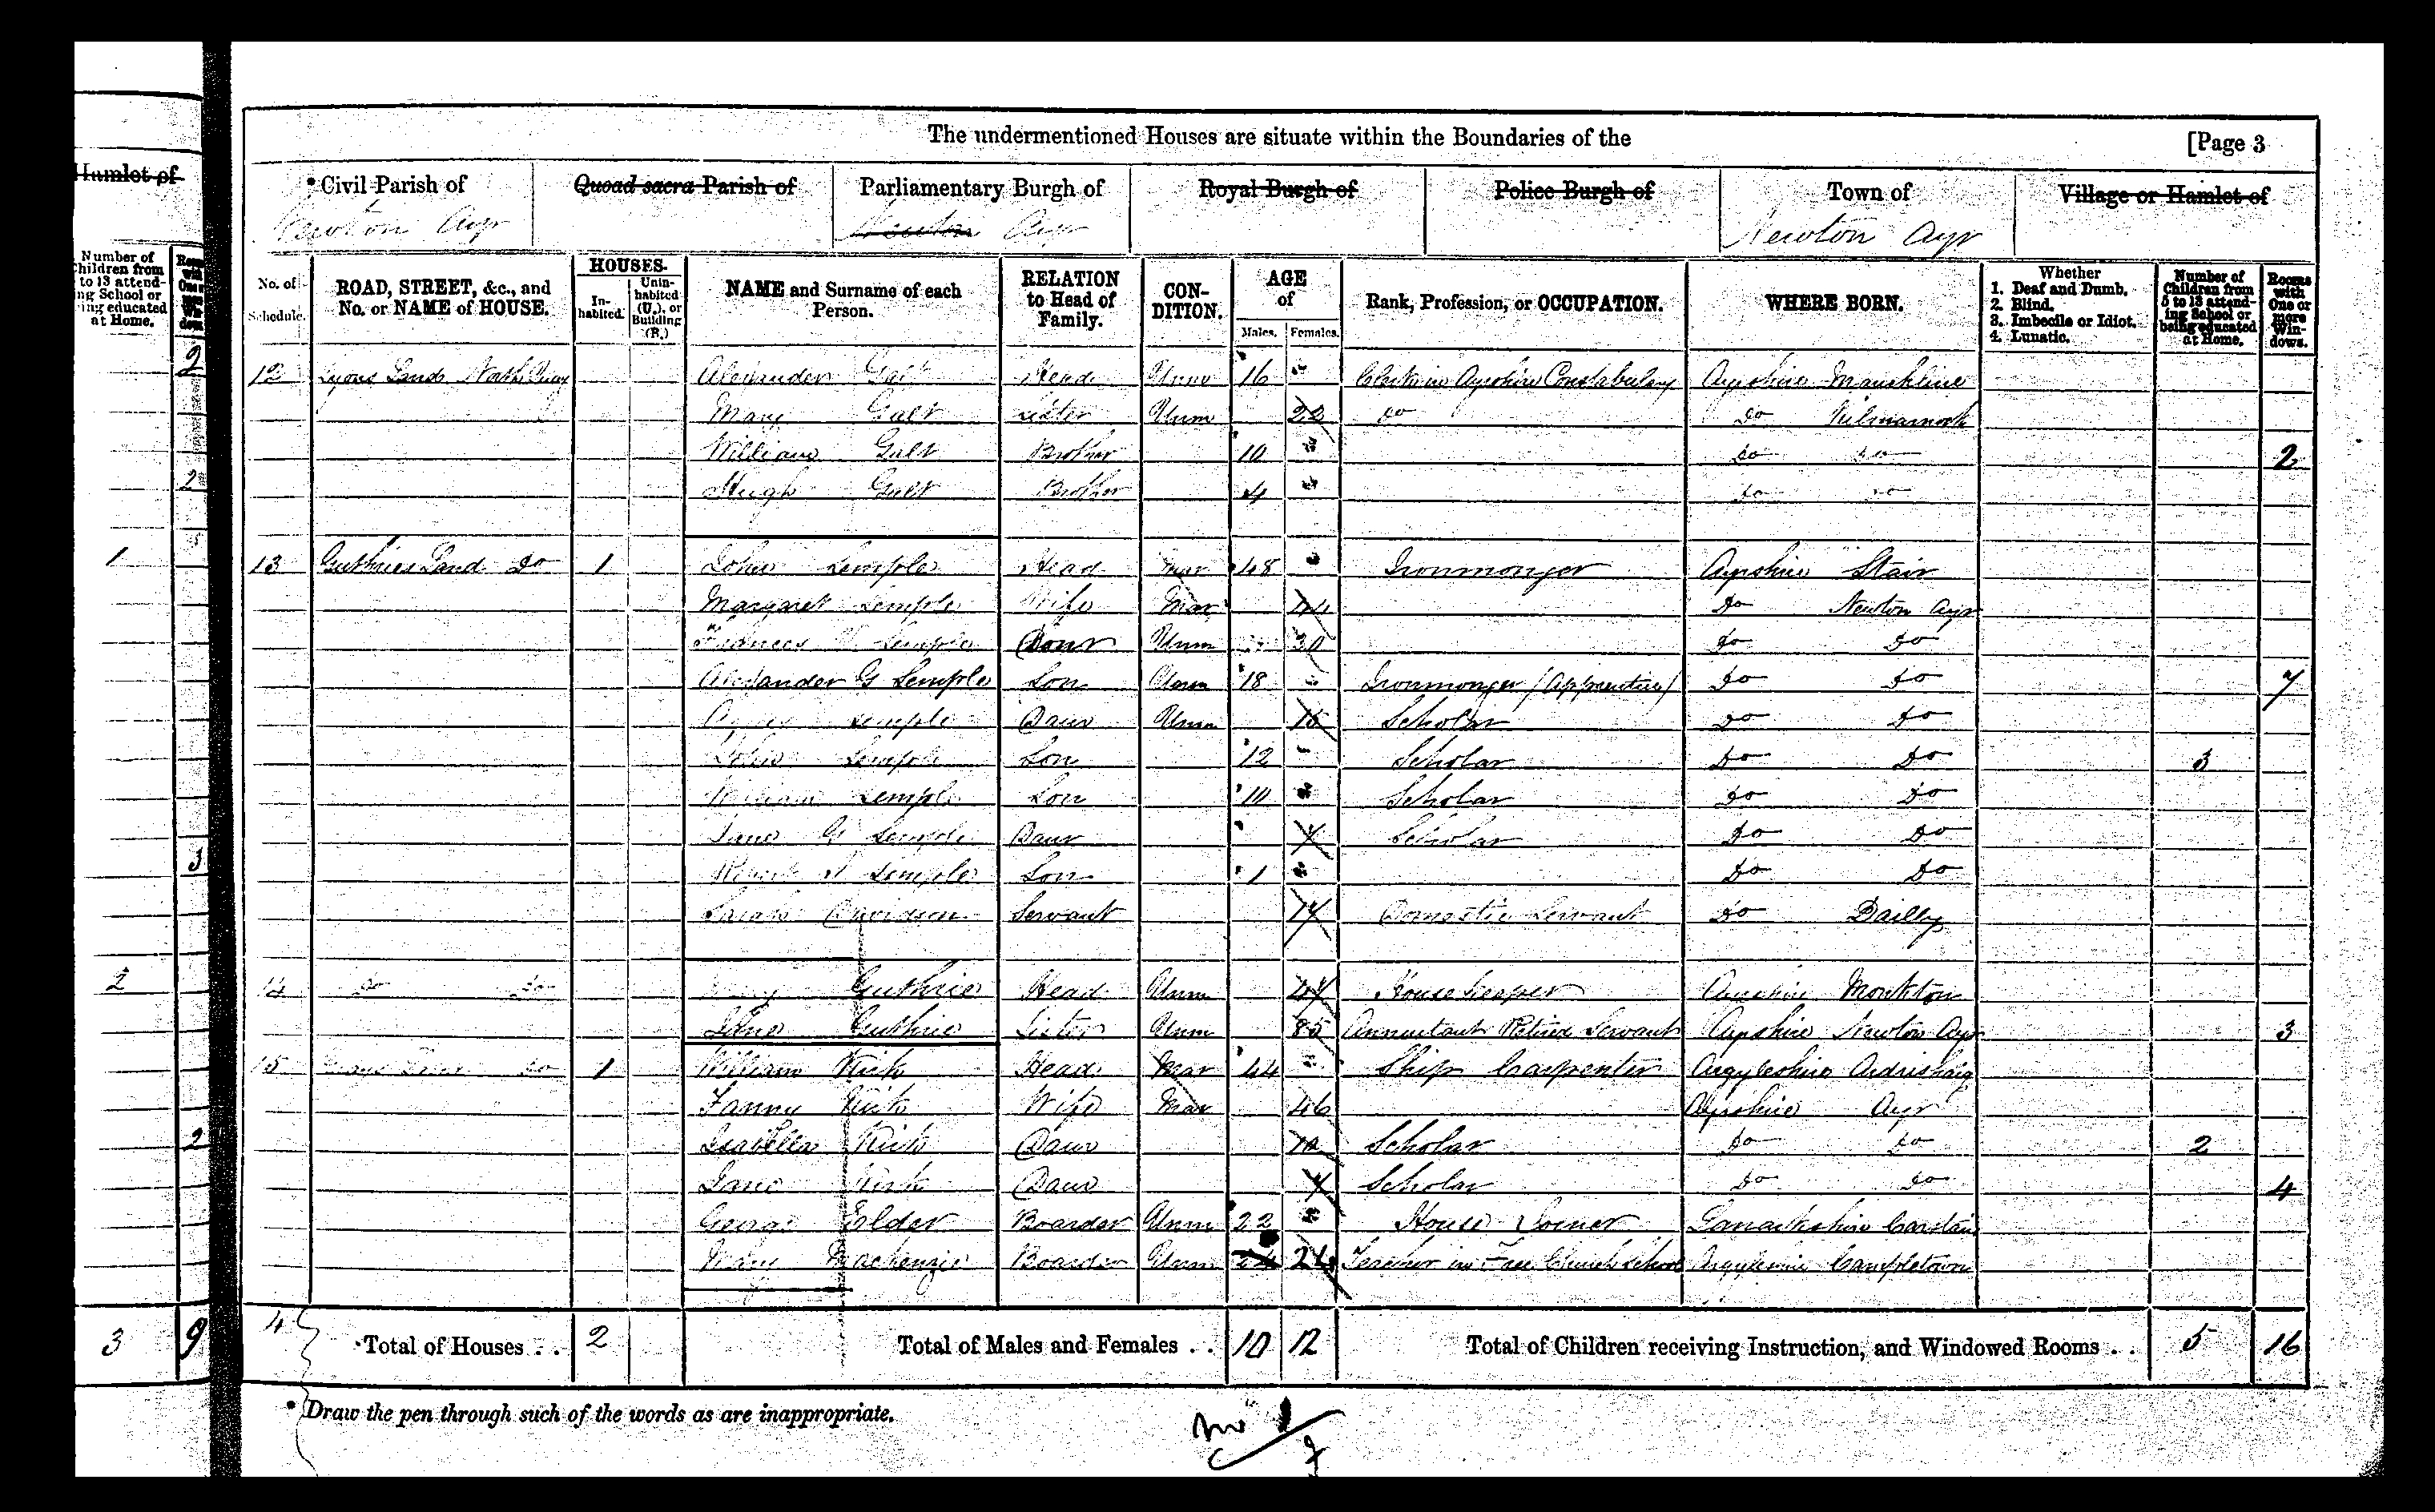 The undermentioned Houses are situate within the Boundaries of the [Page 3
Hamlet of
Civil Parish of Quoad sacra Parish of Parliamentary Burgh of Royal Burgh of Police Burgh of Town of Village or Hamlet of
Newton Ayr Newton Ayr Newton Ayr
Number of Children from 5 to 13 attending School or being educated at Home.
No. of Schedule. ROAD, STREET, &c., and No. or NAME of HOUSE. HOUSES. Inhabited. Uninhabited (U.), or Building (B.) NAME and Surname of each Person. RELATION to Head of Family. CONDITION. AGE of Males. Females. Rank, Profession, or OCCUPATION. WHERE BORN. Whether 1. Deaf and Dumb. 2. Blind. 3. Imbecile or Idiot. 4. Lunatic. Number of Children from 5 to 13 attending School or being educated at Home. Rooms with One or more Windows.
2 12 Lyons Land North Quay Alexander Galt Head Unm 16 Clerk in Ayrshire Constabulary Ayrshire Mauchline
Mary Galt Sister Unm 22 do do Kilmarnock
William Galt Brother 10 do do 2
2 Hugh Galt Brother 4 do do
1 13 Guthries Land Do 1 John Semple Head Mar 48 Ironmonger Ayrshire Stair
Margaret Semple Wife Mar 44 Do Newton Ayr
Semple Daur Unm do do
Alexander G Semple Son Unm 18 Ironmonger (Apprentice) do do 7
Agnes Semple Daur Unm Scholar do do
John Semple Son 12 Scholar do do 3
William Semple Son 10 Scholar do do
Jane G Semple Daur 7 Scholar do do
3 Semple Son 1 do do
Sarah Davidson Servant 17 Domestic Servant do Dailly
2 14 do do Guthrie Head Unm Housekeeper Ayrshire Monkton
Jane Guthrie Sister Unm 85 Annuitant Retired Servant Ayrshire Newton Ayr 3
15 do 1 William Kirk Head Mar 44 Ship Carpenter Argyleshire Ardrishaig
Fanny Kirk Wife Mar 46 Ayrshire Ayr
2 Isabella Kirk Daur Scholar do do 2
Jane Kirk Daur 7 Scholar do do 4
George Elder Boarder Unm 22 House Joiner Lanarkshire Carstairs
Mary Mackenzie Boarder Unm 24 24 Teacher in Free Church School Argyleshire Campletown
3 9 4 Total of Houses . . 2 Total of Males and Females . . 10 12 Total of Children receiving Instruction, and Windowed Rooms . . 5 16
* Draw the pen through such of the words as are inappropriate.